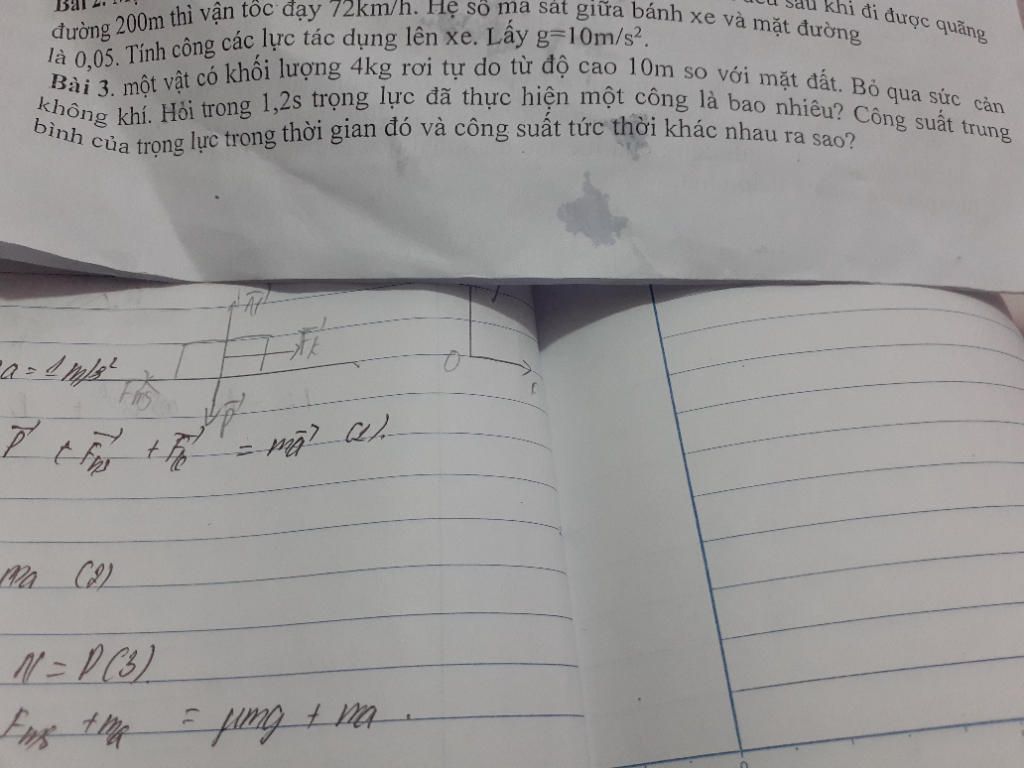 sau khi đi được quãng
đường 200m thì vận tốc đạy 72km/h. Hệ số ma sát giữa bánh xe và mặt đường
là 0,05. Tính công các lực tác dụng lên xe. Lấy g=10m/s².
Bài 3. một vật có khối lượng 4kg rơi tự do từ độ cao 10m so với mặt đất. Bỏ qua sức cản
không khí. Hỏi trong 1,2s trọng lực đã thực hiện một công là bao nhiêu? Công suất trung
bình của trọng lực trong thời gian đó và công suất tức thời khác nhau ra sao?
N⃗
F⃗k
O
a = 1 m/s²
Fms
P⃗
P⃗ + F⃗ms + F⃗k = ma⃗ (1).
ma (2)
N = P (3)
Fms + ma = μmg + ma.
0